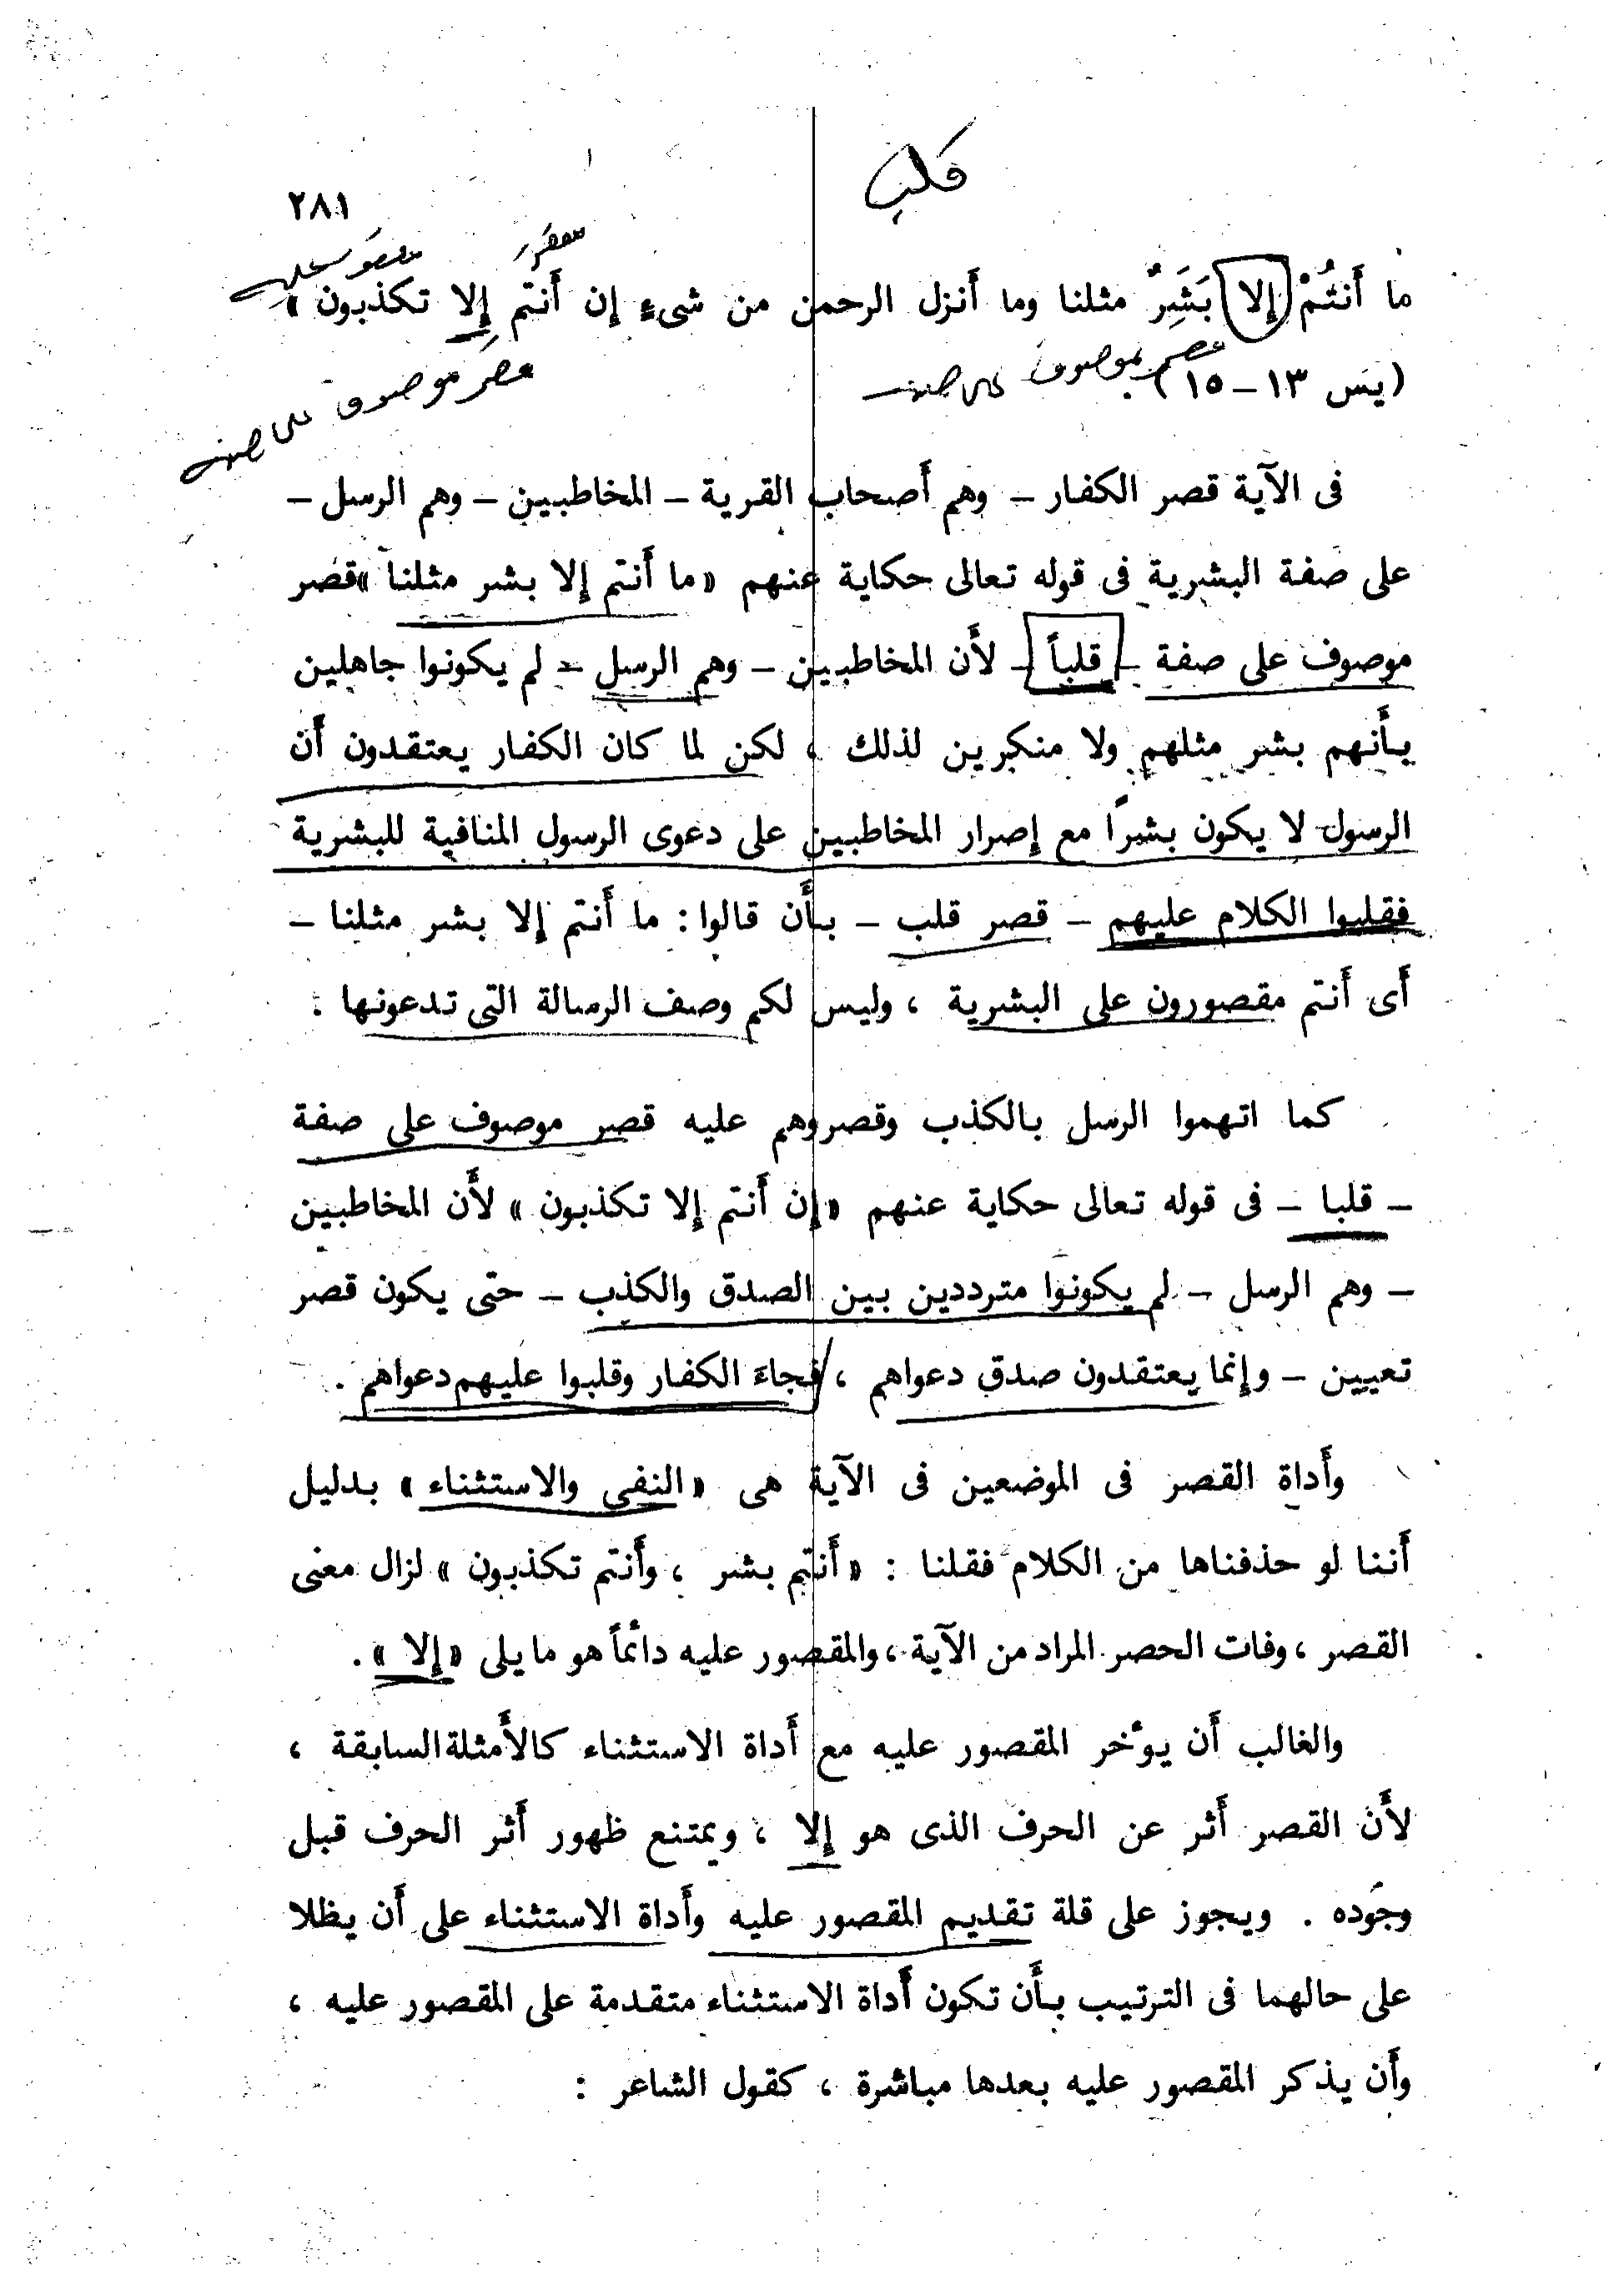 قلب
٢٨١
مقصور مقصور عليه
ما أَنتُمْ إِلا بَشَرٌ مثلنا وما أَنزل الرحمن من شىءٍ إن أَنتم إلا تكذبون »
(يس ١٣ – ١٥) .
قصر موصوف على صفة
قصر موصوف على صفة
فى الآية قصر الكفار – وهم أَصحاب القرية – المخاطبين – وهم الرسل –
على صفة البشرية فى قوله تعالى حكاية عنهم « ما أَنتم إلا بشر مثلنا » قصر
موصوف على صفة – قلباً – لأَن المخاطبين – وهم الرسل – لم يكونوا جاهلين
بأَنهم بشر مثلهم ولا منكرين لذلك ، لكن لما كان الكفار يعتقدون أَن
الرسول لا يكون بشراً مع إصرار المخاطبين على دعوى الرسول المنافية للبشرية
فقلبوا الكلام عليهم – قصر قلب – بأَن قالوا : ما أَنتم إلا بشر مثلنا –
أَى أَنتم مقصورون على البشرية ، وليس لكم وصف الرسالة التى تدعونها :
كما اتهموا الرسل بالكذب وقصروهم عليه قصر موصوف على صفة
– قلبا – فى قوله تعالى حكاية عنهم « إن أَنتم إلا تكذبون » لأَن المخاطبين
– وهم الرسل – لم يكونوا مترددين بين الصدق والكذب – حتى يكون قصر
تعيين – وإنما يعتقدون صدق دعواهم ، فجاءَ الكفار وقلبوا عليهم دعواهم .
وأَداة القصر فى الموضعين فى الآية هى « النفى والاستثناء » بدليل
أَننا لو حذفناها من الكلام فقلنا : « أَنتم بشر ، وأَنتم تكذبون » لزال معنى
القصر ، وفات الحصر المراد من الآية ، والمقصور عليه دائماً هو ما يلى « إلا » .
والغالب أَن يؤخر المقصور عليه مع أَداة الاستثناء كالأَمثلة السابقة ،
لأَن القصر أَثر عن الحرف الذى هو إلا ، ويمتنع ظهور أَثر الحرف قبل
وجوده . ويجوز على قلة تقديم المقصور عليه وأَداة الاستثناء على أَن يظلا
على حالهما فى الترتيب بأَن تكون أَداة الاستثناء متقدمة على المقصور عليه ،
وأَن يذكر المقصور عليه بعدها مباشرة ، كقول الشاعر :